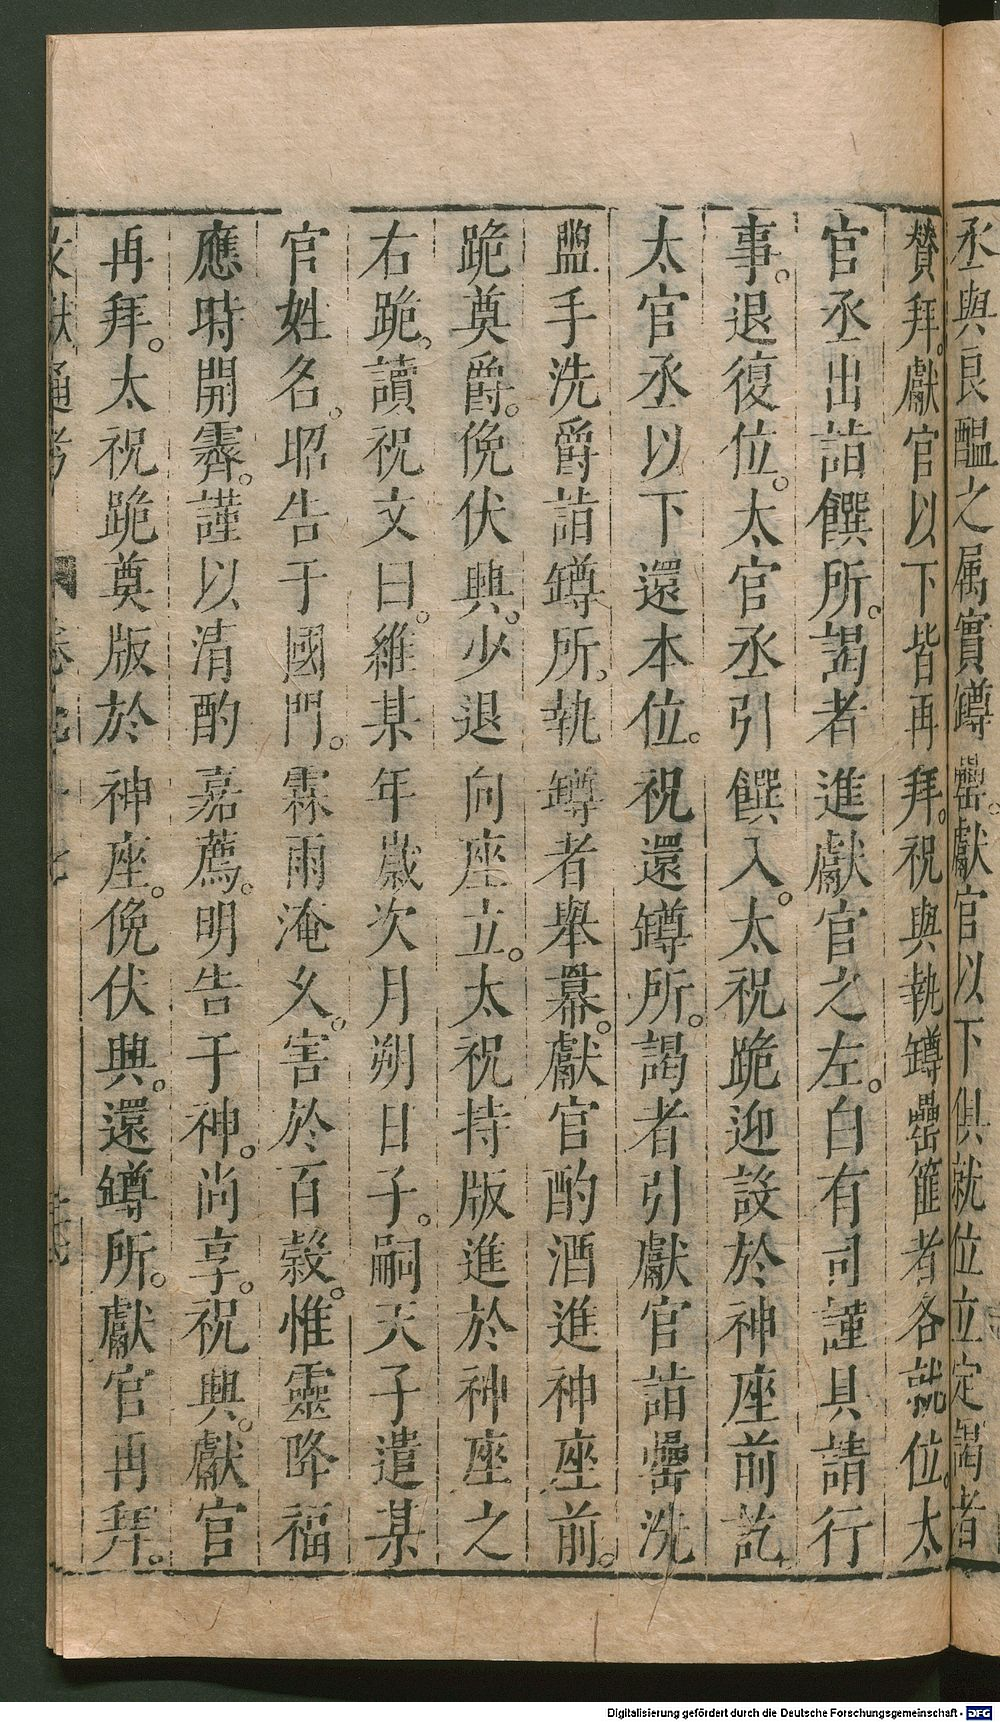 丞與良醞之属實罇罍。獻官以下俱就位立定謁者
贊拜。獻官以下皆再拜。祝與執罇罍篚者各就位。太
官丞出詣饌所。謁者進獻官之左。白有司謹具請行
事。退復位。太官丞引饌入。太祝跪迎設於神座前訖
太官丞以下還本位。祝還罇所。謁者引獻官詣罍洗
盥手洗爵詣罇所。執罇者舉冪。獻官酌酒進神座前。
跪奠爵。俛伏興。少退向座立。太祝持版進於神座之
右跪。讀祝文曰。維某年歲次月朔日子。嗣天子遣某
官姓名。昭告于國門。霖雨淹久。害於百榖。惟靈降福
應時開霽。謹以清酌嘉薦。明告于神。尚享。祝興。獻官
再拜。太祝跪奠版於神座。俛伏興。還罇所。獻官再拜。
文獻通考
Digitalisierung gefördert durch die Deutsche Forschungsgemeinschaft - DFG